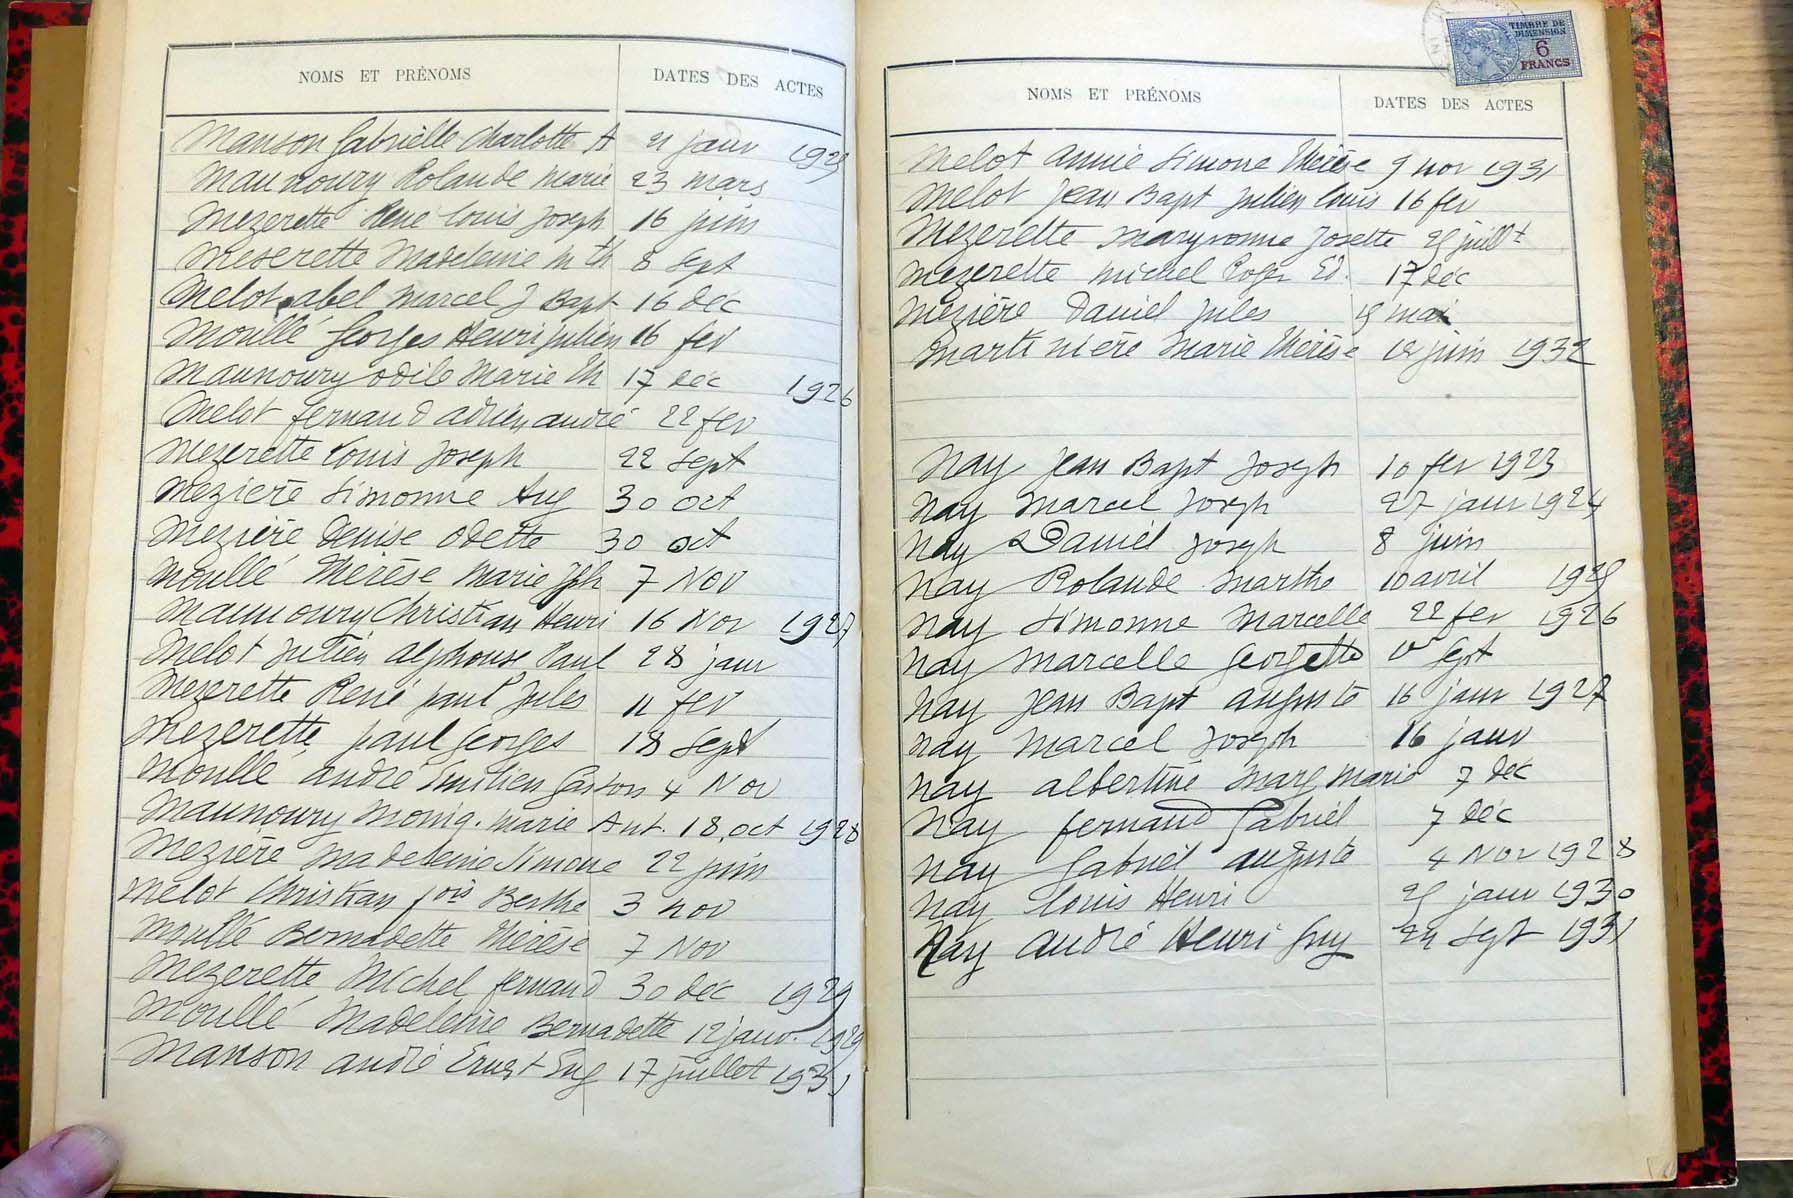 NOMS ET PRÉNOMS DATES DES ACTES
Manson Gabrielle Charlotte A 21 janv 1925
Maunoury Rolande Marie 23 mars
Mezerette René Louis Joseph 16 juin
Meserette Madeleine M Th 8 Sept
Melot abel Marcel J Bapt 16 déc
Moullé Georges Henri Julien 16 fev
Maunoury Odile Marie Th 17 déc 1926
Melot fernand adrien andré 22 fev
Mezerette Louis Joseph 22 Sept
Mezière Simonne Aug 30 oct
Mezière Denise Odette 30 oct
Moullé Thérèse Marie Jph 7 Nov
Maunoury Christian Henri 16 Nov 1927
Melot Julien alphonse Paul 28 janv
Mezerette René paul Jules 11 fev
Mezerette paul Georges 18 Sept
Moullé andré Emilien Gaston 4 Nov
Maunoury Moniq. Marie Ant. 18 oct 1928
Mezière Madeleine Simone 22 juin
Melot Christian fois Berthe 3 nov
Moullé Bernadette Thérèse 7 Nov
Mezerette Michel fernand 30 déc 1929
Moullé Madeleine Bernadette 12 janv. 1929
Manson andré Ernest Eug 17 juillet 1931
TIMBRE DE
DIMENSION
6
FRANCS
NOMS ET PRÉNOMS DATES DES ACTES
Melot Annie Simone Thérèse 9 nov 1931
Melot Jean Bapt Julien Louis 16 fev
Mezerette Maryvonne Josette 25 juillt
Mezerette Michel Roger Ed. 17 déc
Mezière Daniel Jules 15 mai
Martinière Marie Thérèse 12 juin 1932
Nay Jean Bapt Joseph 10 fev 1923
Nay Marcel Joseph 27 janv 1924
Nay Daniel Joseph 8 juin
Nay Rolande Marthe 10 avril 1925
Nay Simonne Marcelle 22 fev 1926
Nay Marcelle Georgette Sept
Nay Jean Bapt auguste 16 janv 1927
Nay Marcel Joseph 16 janv
Nay albertine Marg Marie 7 déc
Nay fernand Gabriel 7 déc
Nay Gabriel auguste 4 Nov 1928
Nay Louis Henri 25 janv 1930
Nay andré Henri Guy 24 Sept 1931